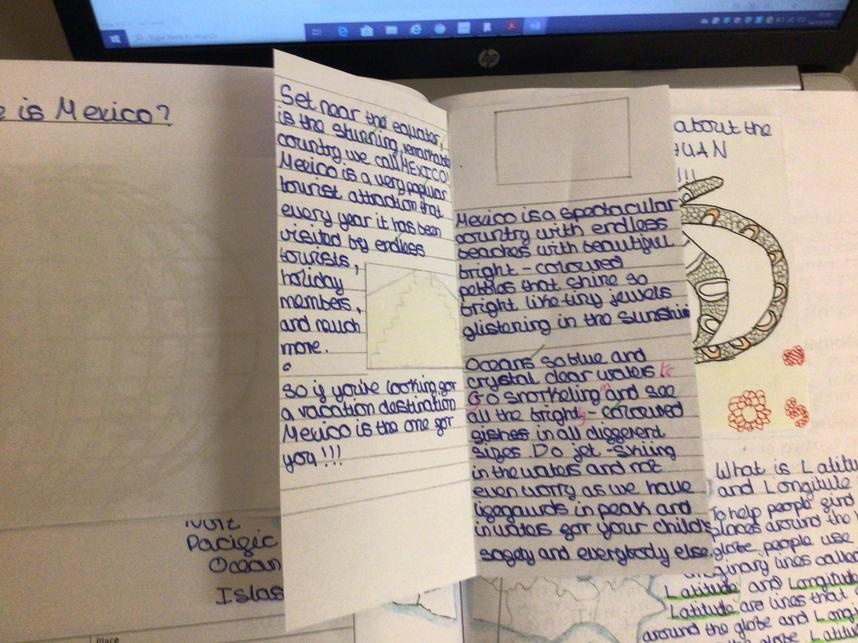 e is Mexico?
Set near the equator,
is the stunning, remarkable
country we call MEXICO!
Mexico is a very popular
tourist attraction that
every year it has been
visited by endless
tourists,
holiday
members,
and much
more.
So if you're looking for
a vacation destination
Mexico is the one for
you!!!
Mexico is a spectacular
country with endless
beaches with beautiful
bright-coloured
pebbles that shine so
bright like tiny jewels
glistening in the sunshin
Oceans so blue and
crystal clear waters
Go snorkeling and see
all the bright-coloured
fishes in all different
sizes. Do jet-skiing
in the waters and not
even worry as we have
lifegaurds in peak and
in waters for your childs
safety and everybody else.
about the
!!!
Pacific
Ocean
Islas
What is Latitu
and Longitute
To help people find
places around the
globe, people use
imaginary lines called
Latitude and Longitude
Latitude are lines that
around the globe and Longi
Place
hp